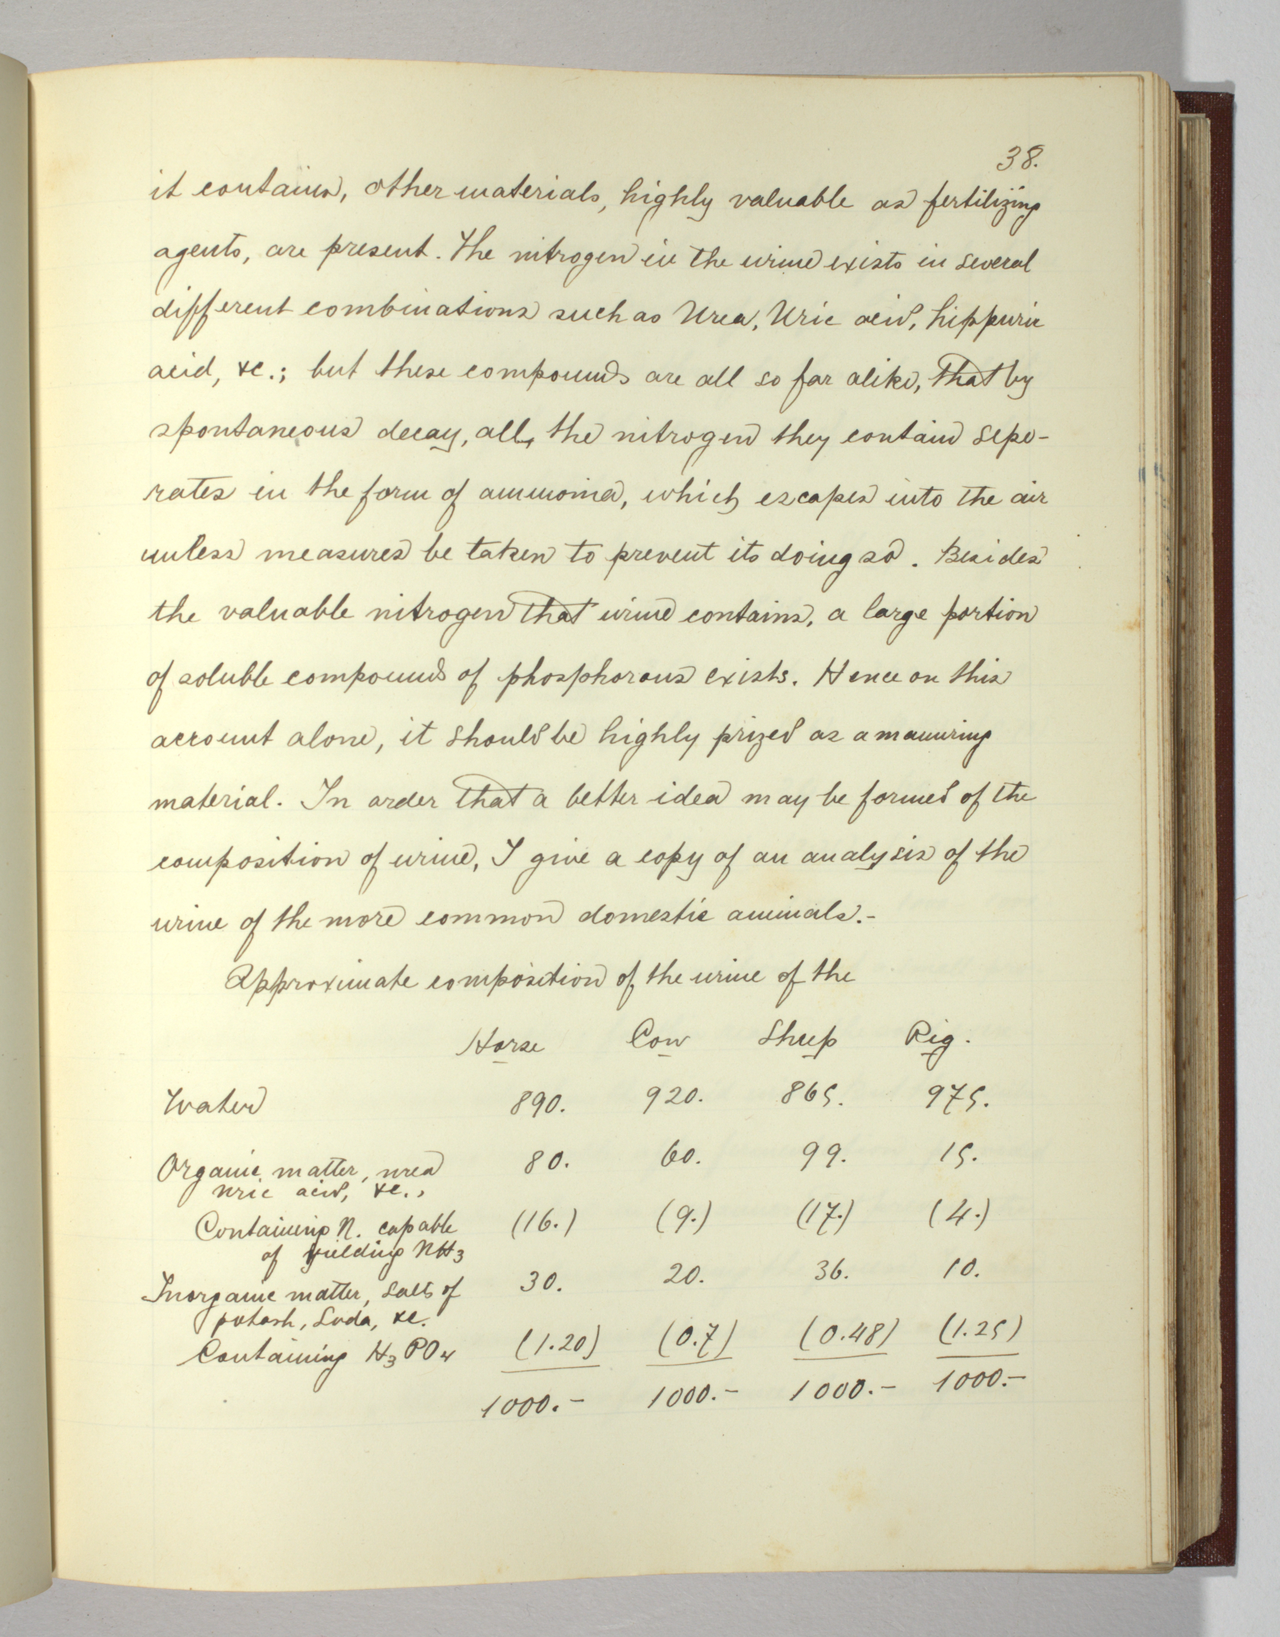 38.
it contains, other materials, highly valuable as fertilizing
agents, are present. The nitrogen in the urine exists in several
different combinations such as Urea, Uric acid, hippuric
acid, &c.; but these compounds are all so far alike, that by
spontaneous decay, all, the nitrogen they contain sepa-
rates in the form of ammonia, which escapes into the air
unless measures be taken to prevent its doing so. Besides
the valuable nitrogen that urine contains, a large portion
of soluble compounds of phosphorous exists. Hence on this
account alone, it should be highly prized as a manuring
material. In order that a better idea may be formed of the
composition of urine, I give a copy of an analysis of the
urine of the more common domestic animals.-
Approximate composition of the urine of the
Horse Cow Sheep Pig.
Water 890. 920. 865. 975.
Organic matter, urea 80. 60. 99. 15.
uric acid, &c.,
Containing N. capable (16.) (9.) (17.) (4.)
of yielding NH3
Inorganic matter, salts of 30. 20. 36. 10.
potash, Soda, &c.
Containing H3PO4 (1.20) (0.7) (0.48) (1.25)
1000.- 1000.- 1000.- 1000.-